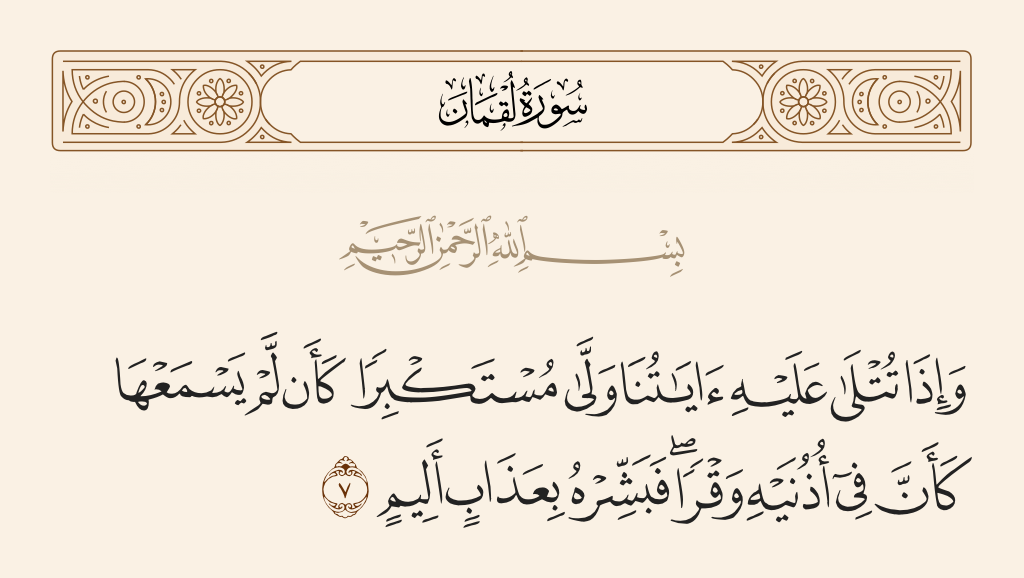 سُورَةُ لُقْمَان
بِسْمِ ٱللَّهِ ٱلرَّحْمَٰنِ ٱلرَّحِيمِ
وَإِذَا تُتْلَىٰ عَلَيْهِ ءَايَٰتُنَا وَلَّىٰ مُسْتَكْبِرًا كَأَن لَّمْ يَسْمَعْهَا
كَأَنَّ فِىٓ أُذُنَيْهِ وَقْرًا ۖ فَبَشِّرْهُ بِعَذَابٍ أَلِيمٍ ٧